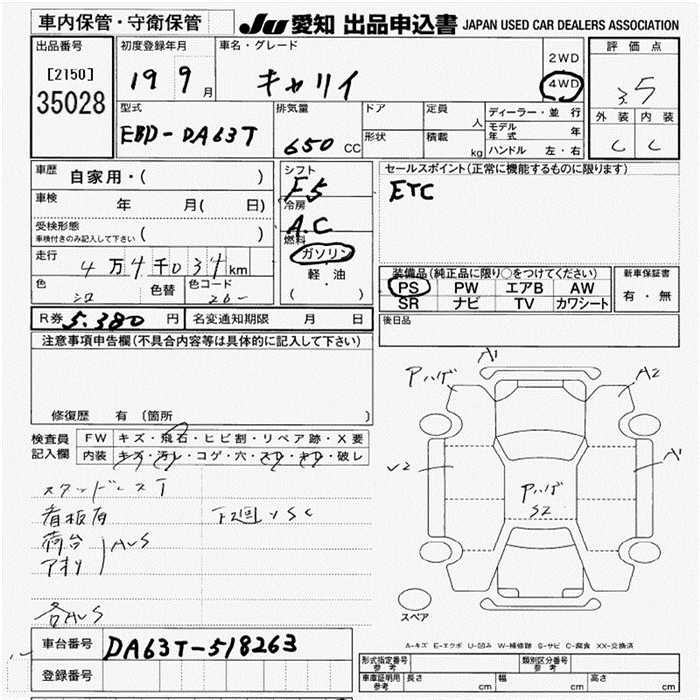 車内保管・守衛保管
JU 愛知 出品申込書 JAPAN USED CAR DEALERS ASSOCIATION
出品番号
[2150]
35028
初度登録年月
19 9月
車名・グレード
キャリイ
2WD
4WD
評価点
3.5
外装 内装
C C
型式
EBD-DA63T
排気量
650 CC
ドア
形状
定員 人
積載 kg
ディーラー・並行
モデル年式 年
ハンドル 左・右
車歴 自家用・( )
車検 年 月( 日)
受検形態
車検付きのみ記入して下さい ( )
走行 4万4千034km
色 シロ 色替 色コード 26U
シフト
F5
冷房
A.C
燃料
ガソリン
軽油
( )
セールスポイント(正常に機能するものに限ります)
ETC
装備品(純正品に限り○をつけてください)
PS PW エアB AW
SR ナビ TV カワシート
新車保証書
有・無
R券 5.380 円 名変通知期限 月 日
後日品
注意事項申告欄(不具合内容等は具体的に記入して下さい)
修復歴 有 (箇所 )
検査員記入欄
FW キズ・飛石・ヒビ割・リペア跡・X要
内装 キズ・汚レ・コゲ・穴・スレ・キレ・破レ
スタッドレスT
看板有
荷台
アオリ
AUS
下2回りSC
各AUS
A1
アハゲ
A2
レ2
A1
アハゲ
S2
スペア
A-キズ E-エクボ U-凹み W-補修跡 S-サビ C-腐食 XX-交換済
車台番号 DA63T-518263
登録番号
形式指定番号 参考
類別区分番号 参考
車庫証明用 参考 長さ cm 幅 cm 高さ cm